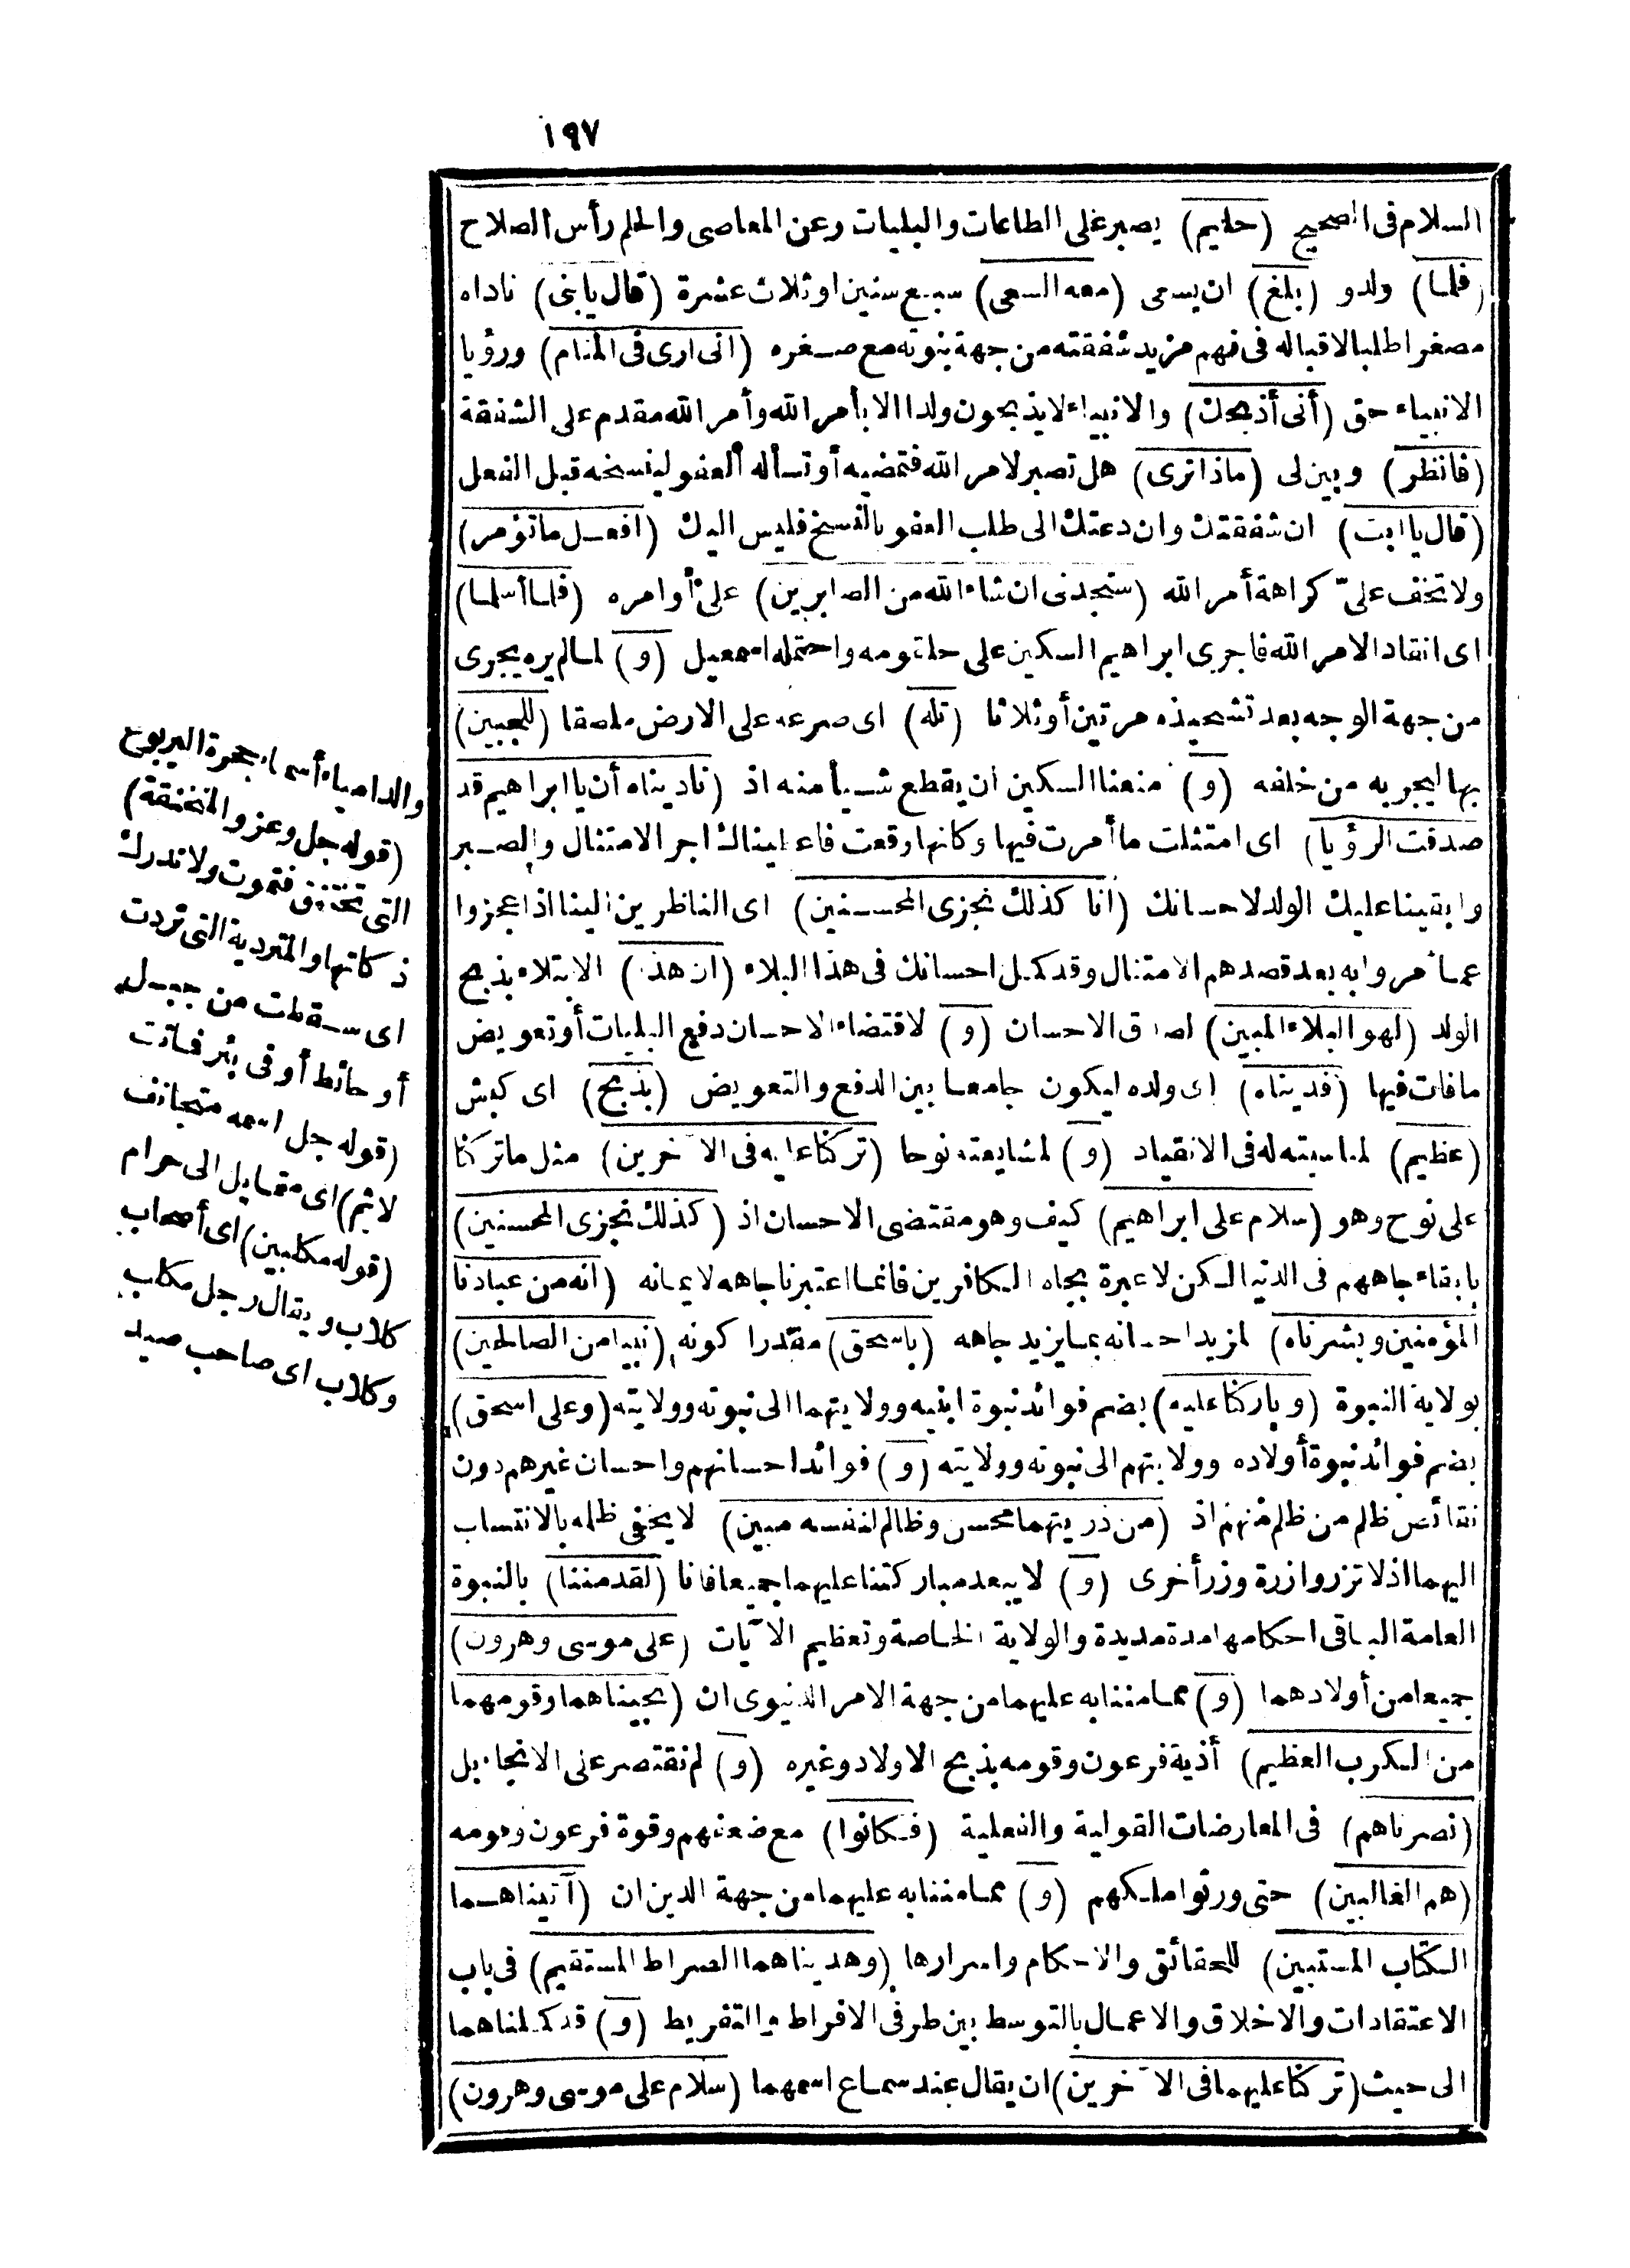 ١٩٧
السلام فى الصحيح (حليم) يصبر على الطاعات والبليات وعن المعاصى والحلم رأس الصلاح
(فلما) ولدو (بلغ) ان يسعى (معه السعى) سبع سنين اوثلاث عشرة (قال يابنى) ناداه
مصغرا طلبا لاقباله فى فهم مزيد شفقته من جهة بنوته مع صغره (انى ارى فى المنام) ورؤيا
الانبياء حق (أنى أذبحك) والانبياء لايذبحون ولدا الا بأمر الله وأمر الله مقدم على الشفقة
(فانظر) وبين لى (ماذا ترى) هل تصبر لامر الله فتمضيه أو تسأله العفو لينسخه قبل الفعل
(قال يا ابت) ان شفقتك وان دعتك الى طلب العفو بالنسخ فليس اليك (افعل ماتؤمر)
ولاتخف علىّ كراهة أمر الله (ستجدنى ان شاء الله من الصابرين) على أوامره (فلما أسلما)
اى انقادا لامر الله فاجرى ابراهيم السكين على حلقومه واحتمله اسمعيل (و) لمالم يره يجرى
من جهة الوجه بعد تشحيذه مرتين أوثلاثا (تله) اى صرعه على الارض ملصقا (للجبين)
بها ليجر به من خلفه (و) منعنا السكين ان يقطع شيأ منه اذ (ناديناه أن يا ابراهيم قد
صدقت الرؤيا) اى امتثلت ما أمرت فيها وكانها وقعت فاعليناك اجر الامتثال والصبر
وابقينا عليك الولد لاحسانك (انا كذلك نجزى المحسنين) اى الناظرين الينا اذا عجزوا
عما أمروا به بعد قصدهم الامتثال وقد كمل احسانك فى هذا البلاء (ان هذا) الابتلاء بذبح
الولد (لهو البلاء المبين) لصدق الاحسان (و) لاقتضاء الاحسان دفع البليات أوتعويض
مافات فيها (فديناه) اى ولده ليكون جامعا بين الدفع والتعويض (بذبح) اى كبش
(عظيم) لمناسبته له فى الانقياد (و) لمشايعته نوحا (تركنا عليه فى الآخرين) مثل ماتركنا
على نوح وهو (سلام على ابراهيم) كيف وهو مقتضى الاحسان اذ (كذلك نجزى المحسنين)
بابقاء جاههم فى الدنيا لكن لاعبرة بجاه الكافرين فانما اعتبرنا جاهه لايمانه (انه من عبادنا
المؤمنين وبشرناه) لمزيد احسانه بما يزيد جاهه (باسحق) مقدرا كونه (نبيا من الصالحين)
بولاية النبوة (وباركنا عليه) بضم فوائد نبوة ابنيه وولايتهما الى نبوته وولايته (وعلى اسحق)
بضم فوائد نبوة أولاده وولايتهم الى نبوته وولايته (و) فوائد احسانهم واحسان غيرهم دون
نقائص ظلم من ظلم منهم اذ (من ذريتهما محسن وظالم لنفسه مبين) لايخفى ظلمه بالانتساب
اليهما اذ لاتزر وازرة وزر أخرى (و) لايبعد مباركتنا عليهما جميعا فانا (لقد مننا) بالنبوة
العامة الباقى احكامها مدة مديدة والولاية الخاصة وتعظيم الآيات (على موسى وهرون)
جميعا من أولادهما (و) مما مننا به عليهما من جهة الامر الدنيوى ان (نجيناهما وقومهما
من الكرب العظيم) أذية فرعون وقومه بذبح الاولاد وغيره (و) لم نقتصر على الانجاء بل
(نصرناهم) فى المعارضات القولية والفعلية (فكانوا) مع ضعفهم وقوة فرعون وقومه
(هم الغالبين) حتى ورثوا ملكهم (و) مما مننا به عليهما من جهة الدين ان (آتيناهما
الكتاب المستبين) للحقائق والاحكام واسرارها (وهديناهما الصراط المستقيم) فى باب
الاعتقادات والاخلاق والاعمال بالتوسط بين طرفى الافراط والتفريط (و) قد كملناهما
الى حيث (تركنا عليهما فى الآخرين) ان يقال عند سماع اسمهما (سلام على موسى وهرون)
والدامياء أسماء جحرة اليربوع
(قوله جل وعز والمنخنقة)
التى تختنق فتموت ولاتدرك
ذكاتها والمتردية التى تردت
اى سقطت من جبل
أو حائط أو فى بئر فماتت
(قوله جل اسمه متجانف
لاثم) اى متمايل الى حرام
(قوله مكلبين) اى أصحاب
كلاب ويقال رجل مكلب
وكلاب اى صاحب صيد